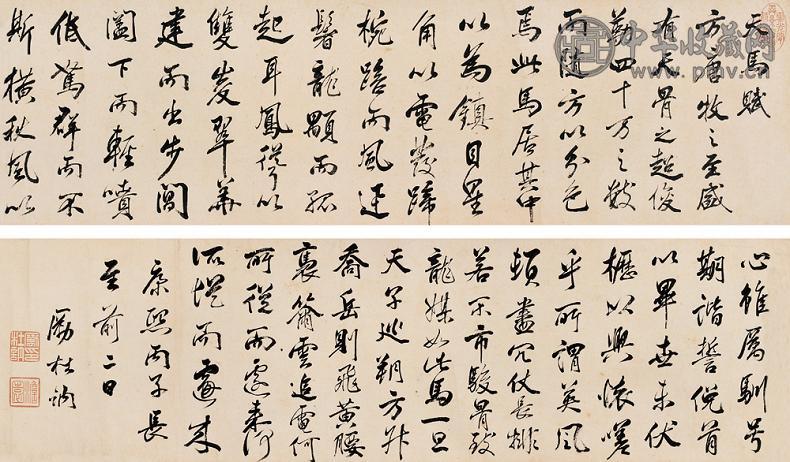 天馬賦
方唐牧之至盛
有天骨之超俊
勒四十萬之數
而随方以分色
馬此馬居其中
以為鎮目星
角以電發蹄
椀踣而風迅
鬐龍顒而孤
起耳鳳聳以
雙峻翠華
建而出步閶
闔下而輕噴
低駑群而不
斯横秋風以
心雄厲馴号
期諧誓俛首
以畢世未伏
櫪以興懐嗟
乎所謂英風
頓盡冗仗長排
若不市駿骨致
龍媒如此馬一旦
天子巡朔方升
喬岳則飛黃腰
裹籋雲追電何
所從而遽來何
所從而遽來
康熙丙子長
至前二日
勵杜訥
中华收藏网
www.pmv.cn